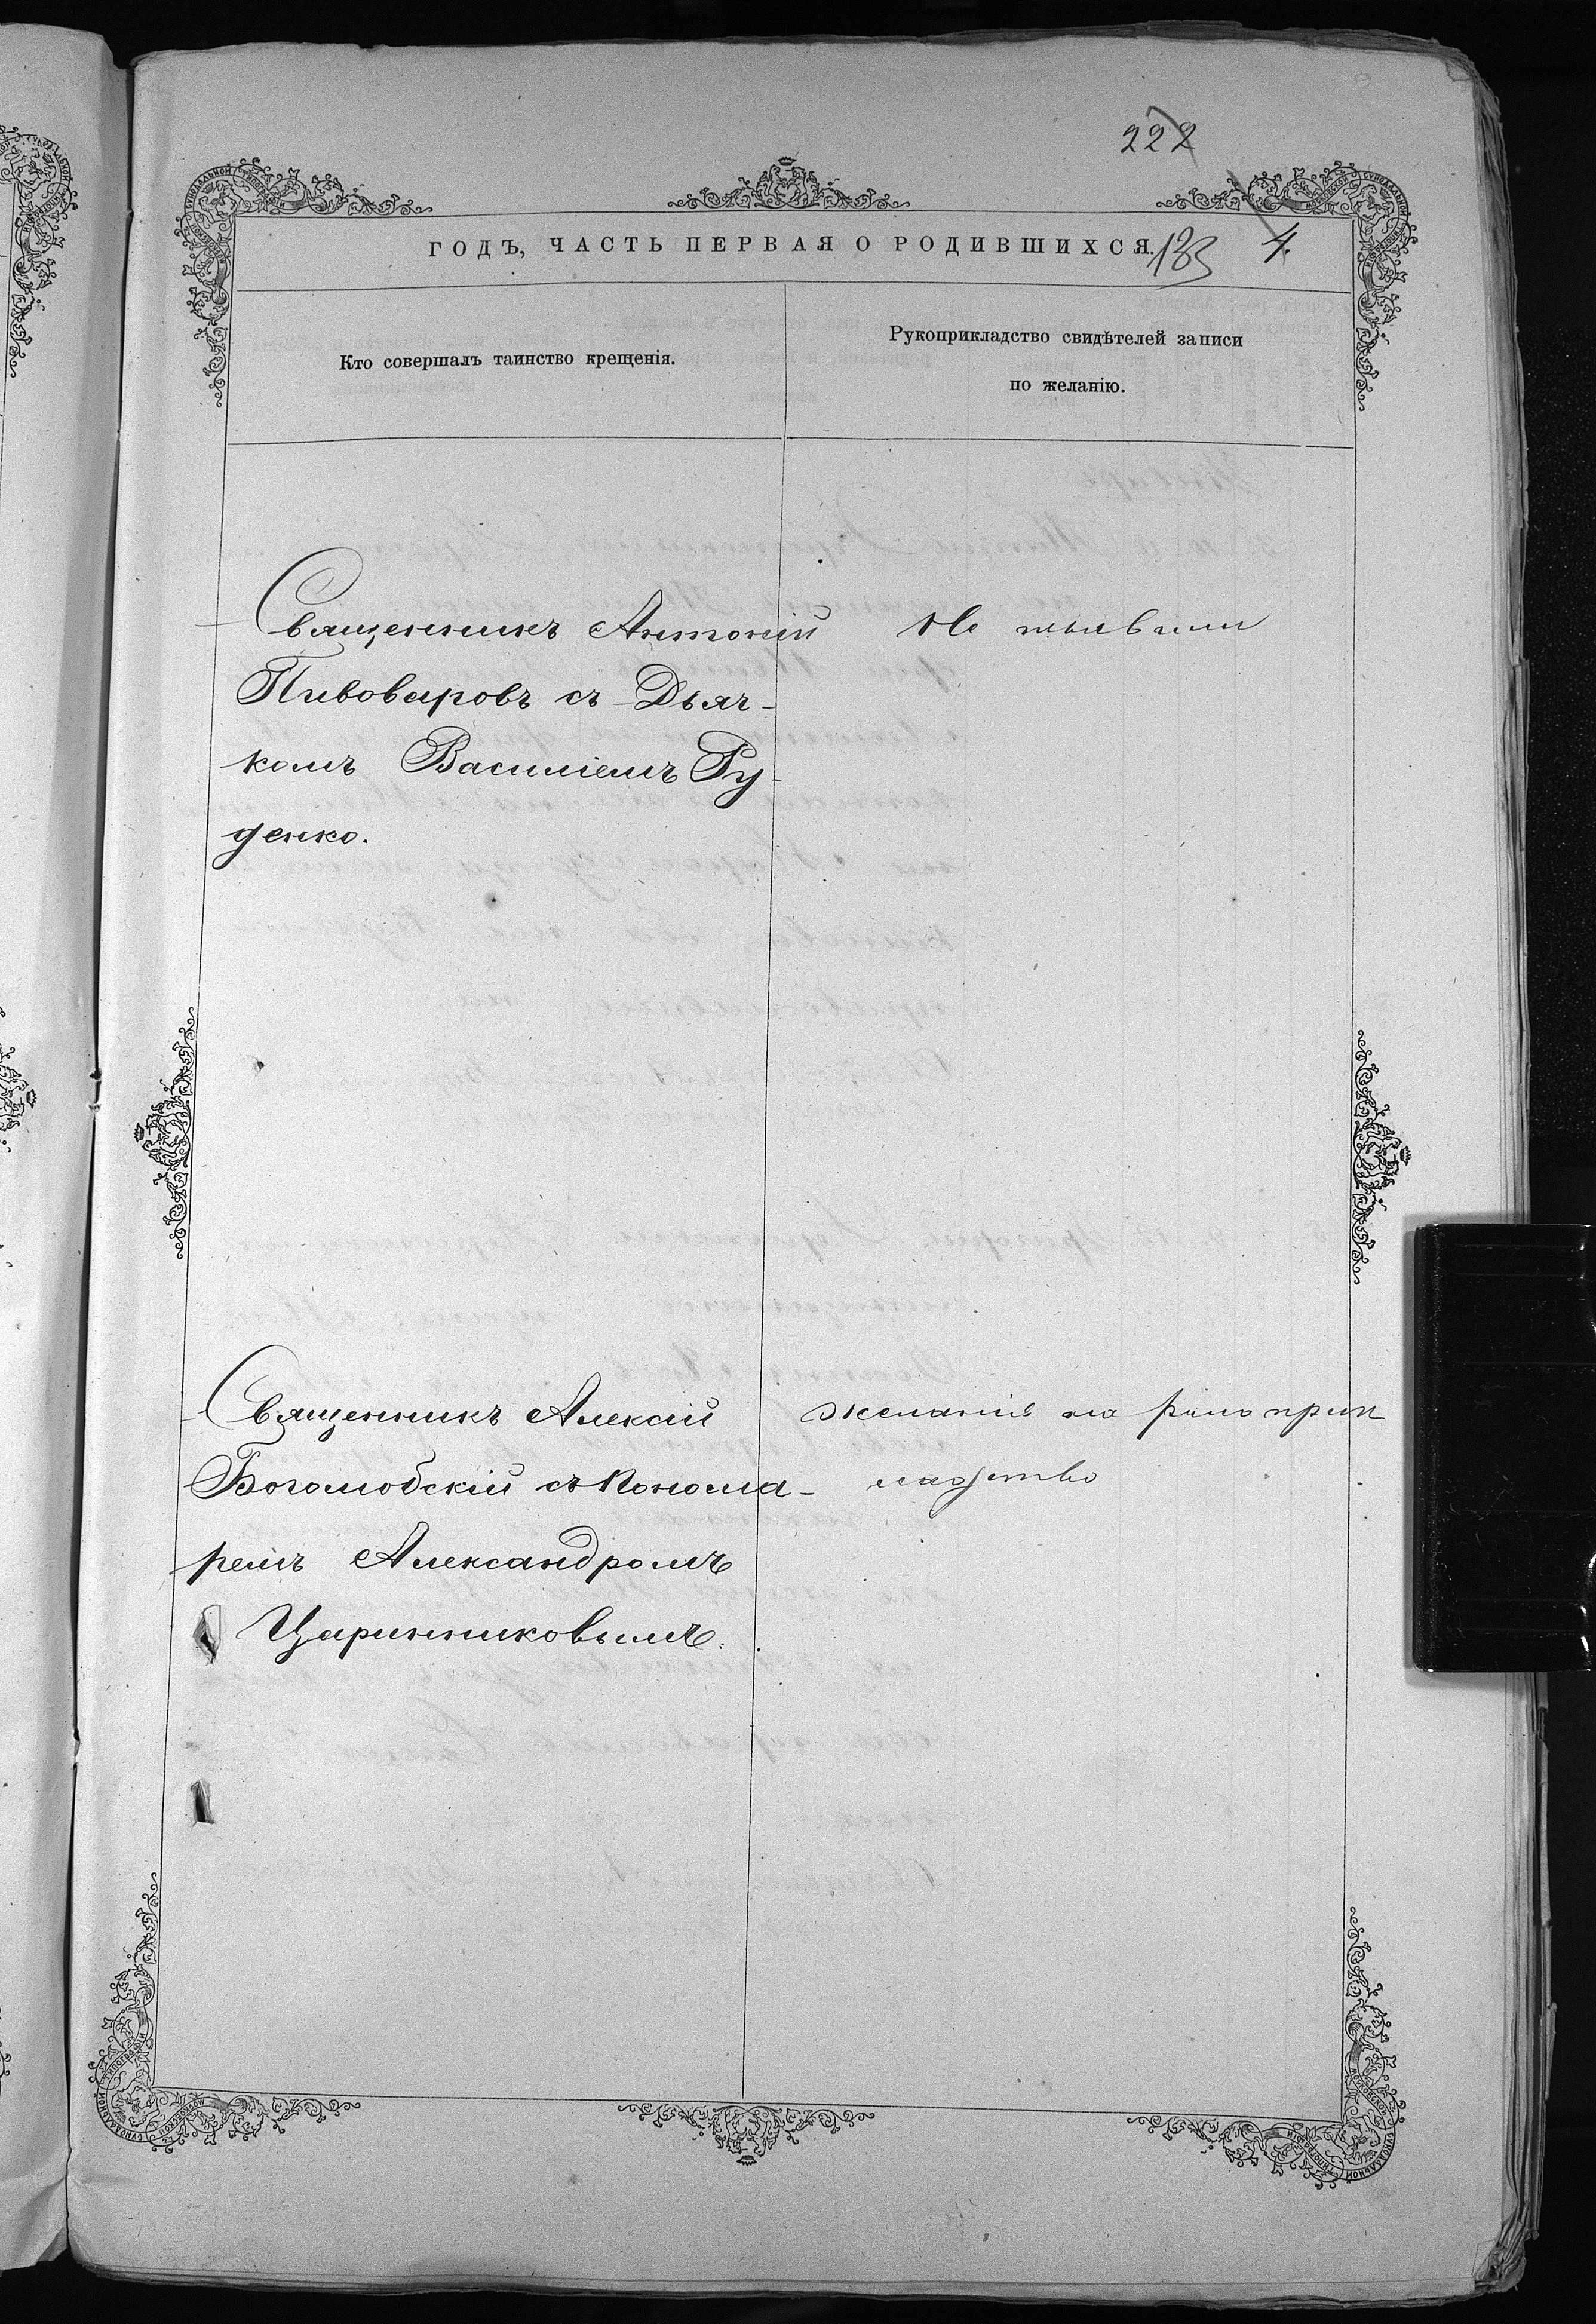 222
ГОДЪ, ЧАСТЬ ПЕРВАЯ О РОДИВШИХСЯ. 183 4.
Кто совершалъ таинство крещенія.
Рукоприкладство свидѣтелей записи
по желанію.
Священникъ Антоній
Пивоваровъ съ Дьяч-
комъ Василіемъ Ру-
денко.
Не
Священникъ Алексій
Боголюбскій съ Понома-
ремъ Александромъ
Царинниковымъ.
желанія на